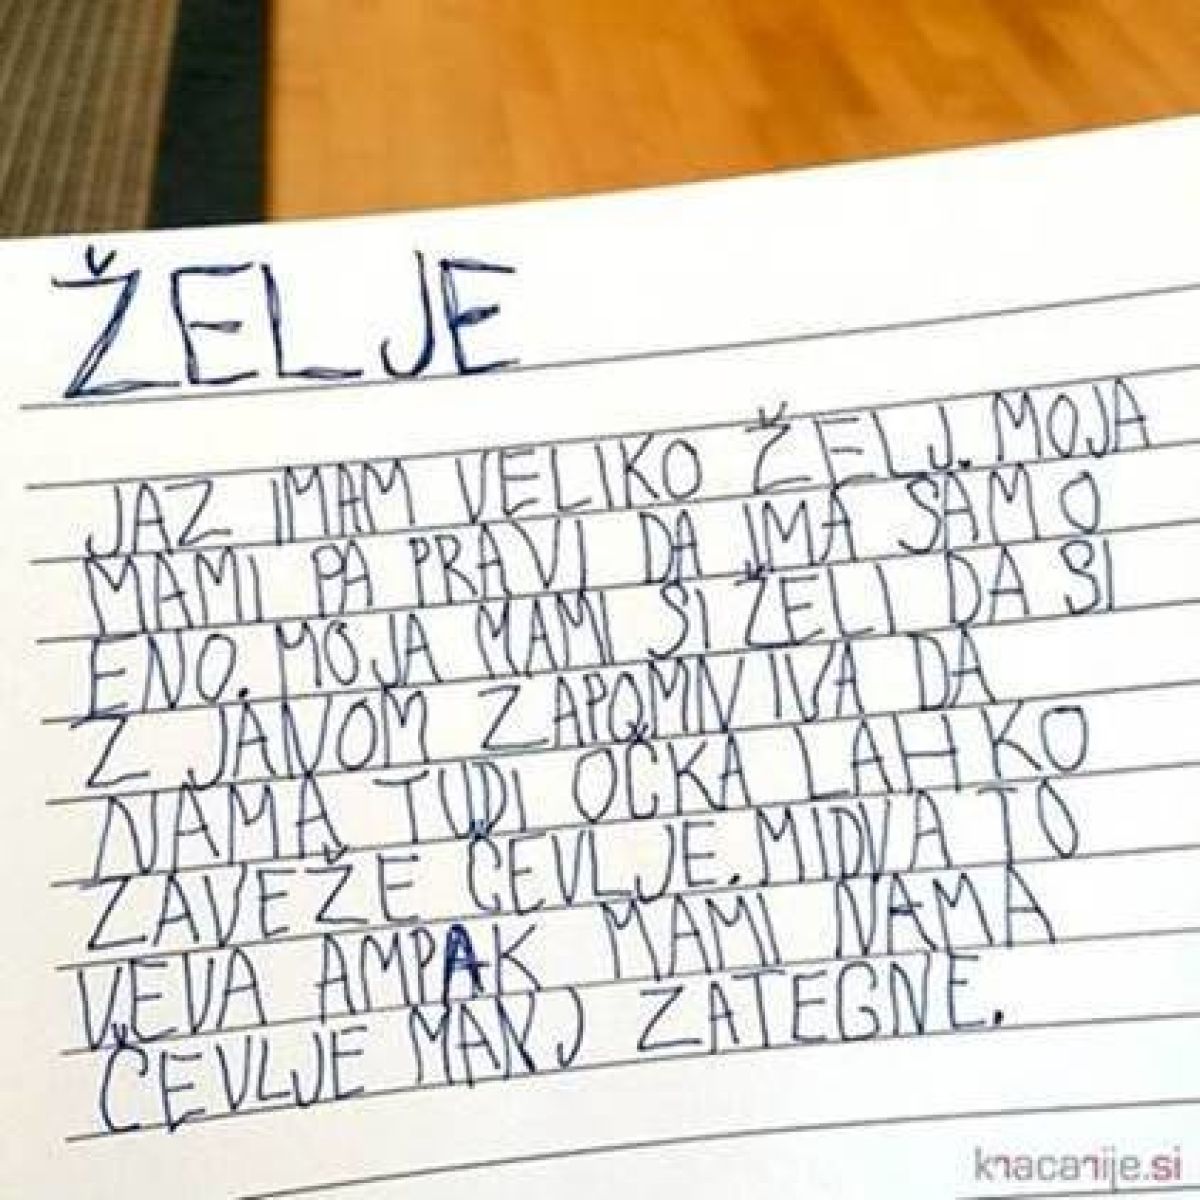 ŽELJE
JAZ IMAM VELIKO ŽELJ. MOJA
MAMI PA PRAVI DA IMA SAMO
ENO. MOJA MAMI SI ŽELI DA SI
Z JANOM ZAPOMNIVA DA
NAMA TUDI OČKA LAHKO
ZAVEŽE ČEVLJE. MIDVA TO
VEVA AMPAK MAMI NAMA
ČEVLJE MANJ ZATEGNE.
knacanije.si